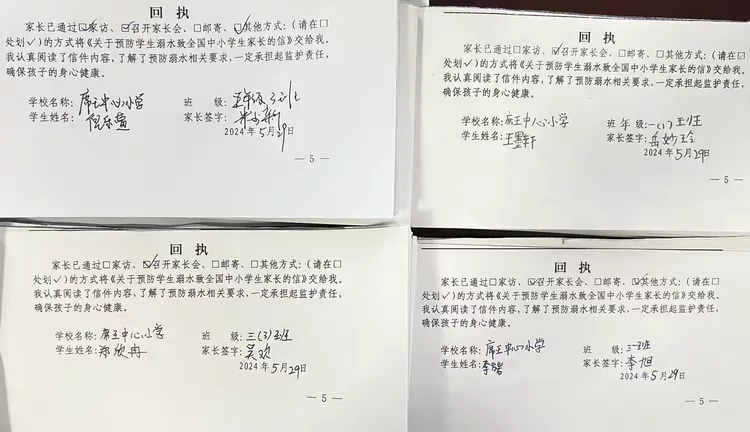 回 执
家长已通过☑家访、☑召开家长会、□邮寄、☑其他方式：（请在□
处划✓）的方式将《关于预防学生溺水致全国中小学生家长的信》交给我。
我认真阅读了信件内容，了解了预防溺水相关要求，一定承担起监护责任，
确保孩子的身心健康。
学校名称：席王中心小学 班 级：
学生姓名： 家长签字：
2024年5月29日
— 5 —
回 执
家长已通过□家访、☑召开家长会、□邮寄、□其他方式：（请在☑
处划✓）的方式将《关于预防学生溺水致全国中小学生家长的信》交给我。
我认真阅读了信件内容，了解了预防溺水相关要求，一定承担起监护责任，
确保孩子的身心健康。
学校名称：席王中心小学 班 年 级：一(1)班
学生姓名：王墨轩 家长签字：
2024年5月29日
— 5 —
回 执
家长已通过□家访、☑召开家长会、□邮寄、□其他方式：（请在□
处划✓）的方式将《关于预防学生溺水致全国中小学生家长的信》交给我。
我认真阅读了信件内容，了解了预防溺水相关要求，一定承担起监护责任，
确保孩子的身心健康。
学校名称：席王中心小学 班 级：三(3)班
学生姓名：郑欣冉 家长签字：吴欢
2024年5月29日
— 5 —
回 执
家长已通过□家访、☑召开家长会、□邮寄、☑其他方式：（请在□
处划✓）的方式将《关于预防学生溺水致全国中小学生家长的信》交给我。
我认真阅读了信件内容，了解了预防溺水相关要求，一定承担起监护责任，
确保孩子的身心健康。
学校名称：席王中心小学 班 级：
学生姓名： 家长签字：李旭
2024年5月29日
— 5 —